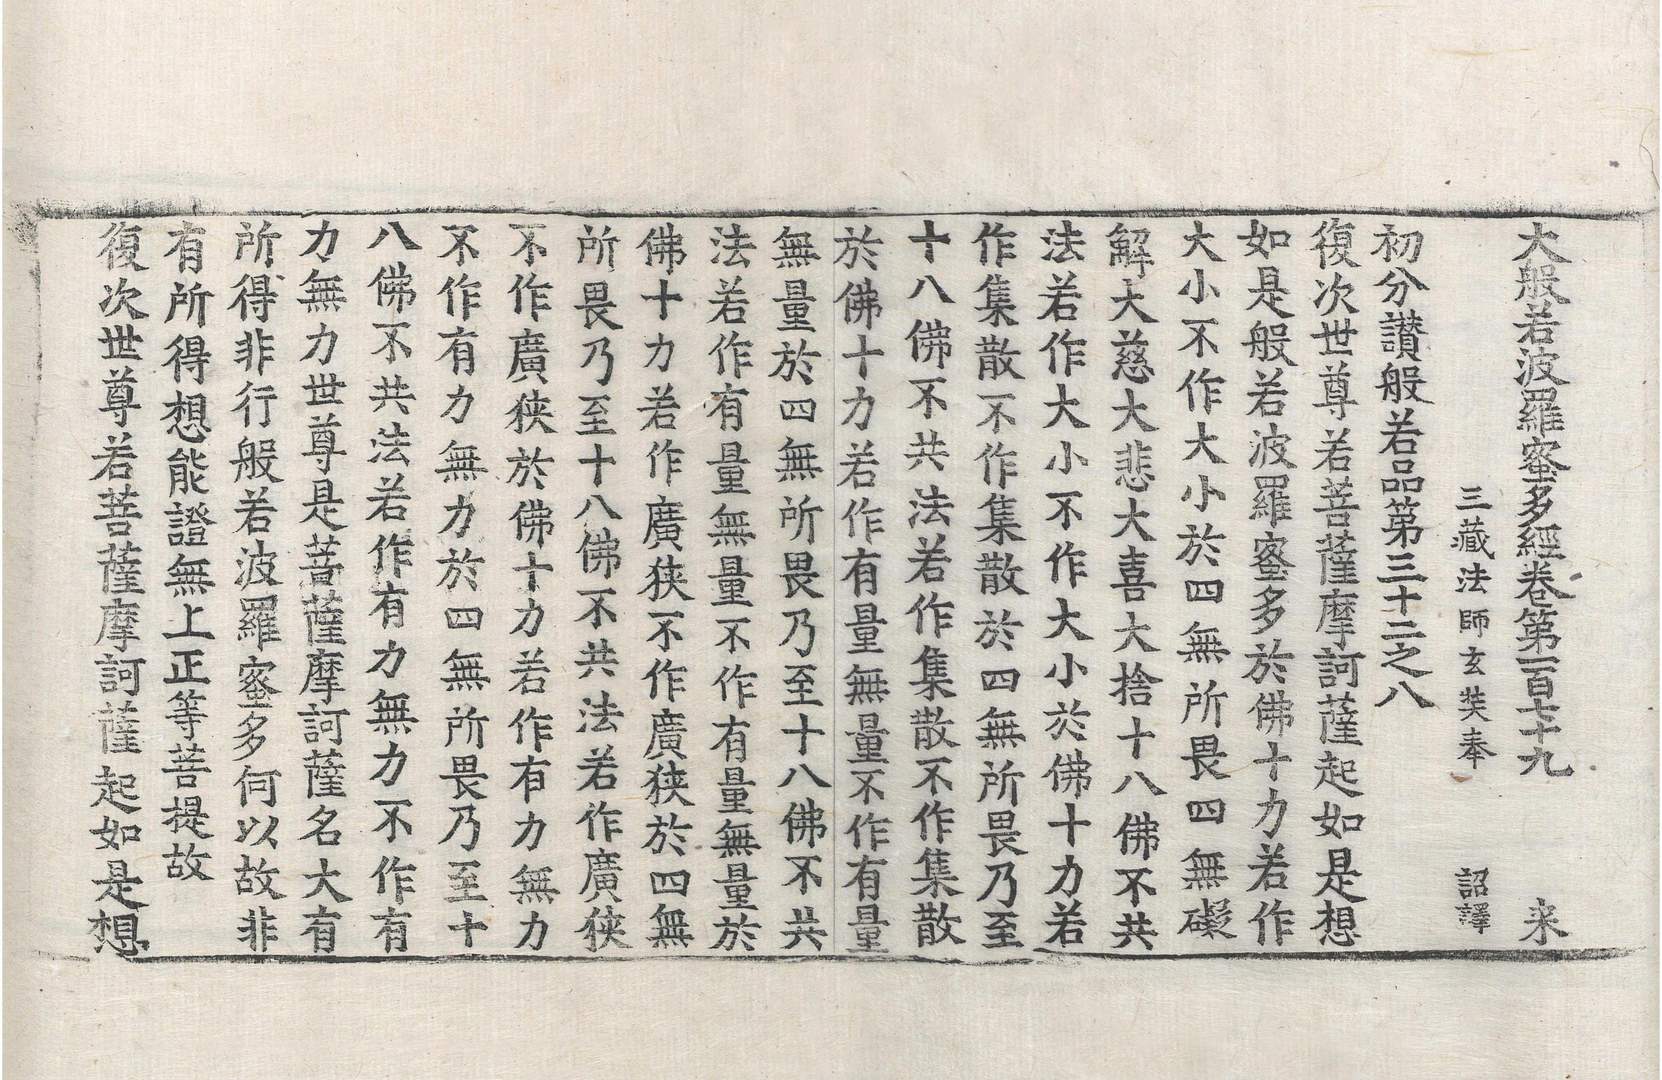 大般若波羅蜜多經卷第一百七十九　来
三藏法師玄奘奉　詔譯
初分讃般若品第三十二之八
復次世尊若菩薩摩訶薩起如是想
如是般若波羅蜜多於佛十力若作
大小不作大小於四無所畏四無礙
解大慈大悲大喜大捨十八佛不共
法若作大小不作大小於佛十力若
作集散不作集散於四無所畏乃至
十八佛不共法若作集散不作集散
於佛十力若作有量無量不作有量
無量於四無所畏乃至十八佛不共
法若作有量無量不作有量無量於
佛十力若作廣狹不作廣狹於四無
所畏乃至十八佛不共法若作廣狹
不作廣狹於佛十力若作有力無力
不作有力無力於四無所畏乃至十
八佛不共法若作有力無力不作有
力無力世尊是菩薩摩訶薩名大有
所得非行般若波羅蜜多何以故非
有所得想能證無上正等菩提故
復次世尊若菩薩摩訶薩起如是想